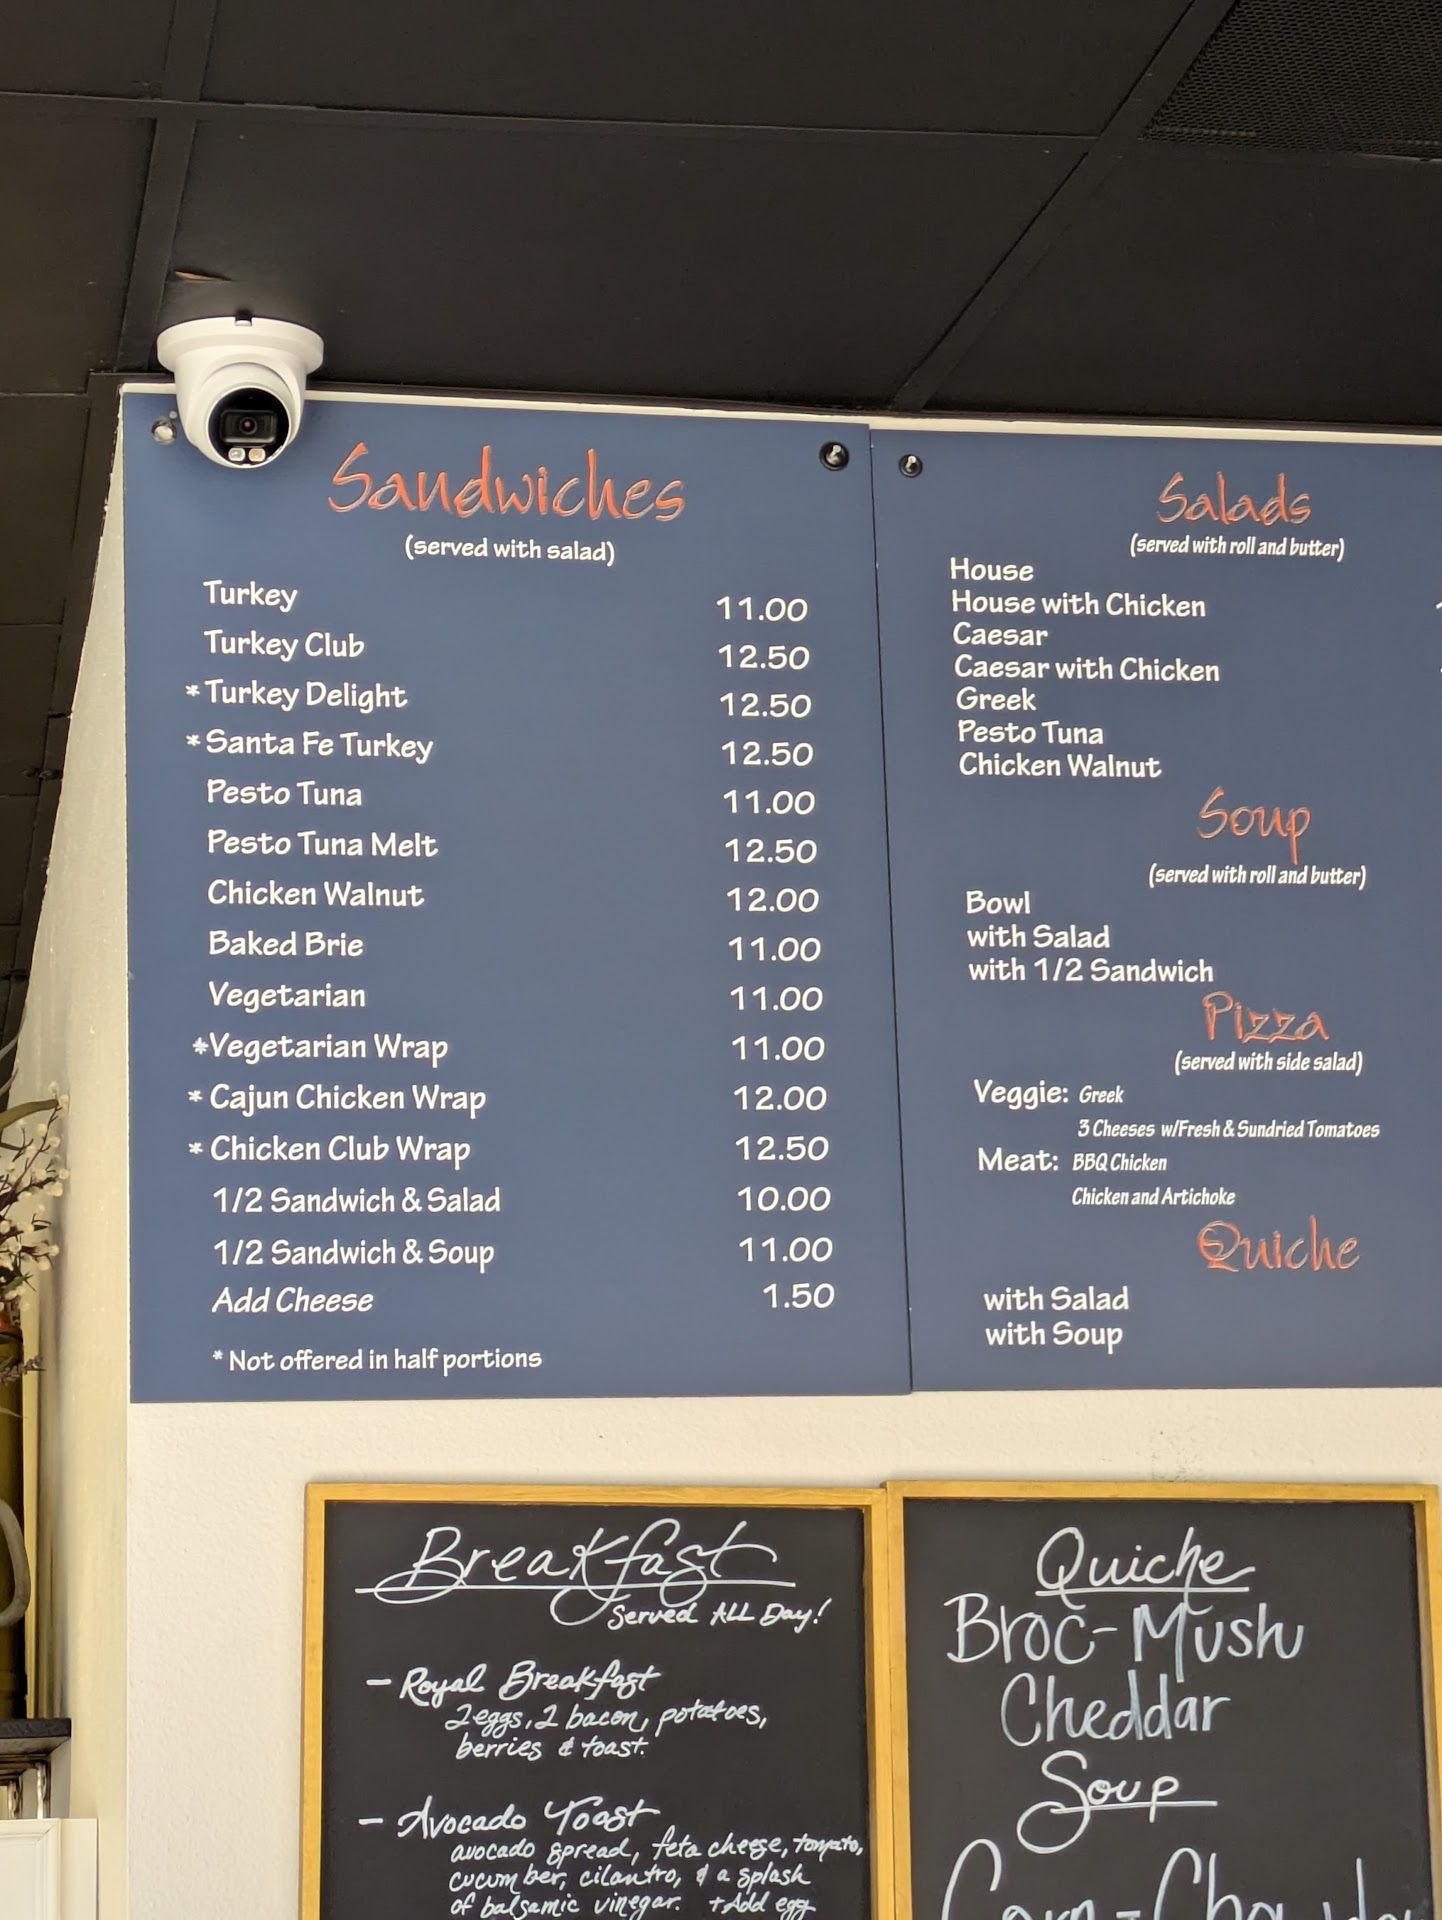 Sandwiches
(served with salad)
Turkey 11.00
Turkey Club 12.50
* Turkey Delight 12.50
* Santa Fe Turkey 12.50
Pesto Tuna 11.00
Pesto Tuna Melt 12.50
Chicken Walnut 12.00
Baked Brie 11.00
Vegetarian 11.00
*Vegetarian Wrap 11.00
* Cajun Chicken Wrap 12.00
* Chicken Club Wrap 12.50
1/2 Sandwich & Salad 10.00
1/2 Sandwich & Soup 11.00
Add Cheese 1.50
* Not offered in half portions
Salads
(served with roll and butter)
House
House with Chicken
Caesar
Caesar with Chicken
Greek
Pesto Tuna
Chicken Walnut
Soup
(served with roll and butter)
Bowl
with Salad
with 1/2 Sandwich
Pizza
(served with side salad)
Veggie: Greek
3 Cheeses w/Fresh & Sundried Tomatoes
Meat: BBQ Chicken
Chicken and Artichoke
Quiche
with Salad
with Soup
Breakfast
Served ALL Day!
- Royal Breakfast
2 eggs, 2 bacon, potatoes,
berries & toast.
- Avocado Toast
avocado spread, feta cheese, tomato,
cucumber, cilantro, & a splash
of balsamic vinegar. +Add egg
Quiche
Broc-Mush
Cheddar
Soup
Corn-Chowder